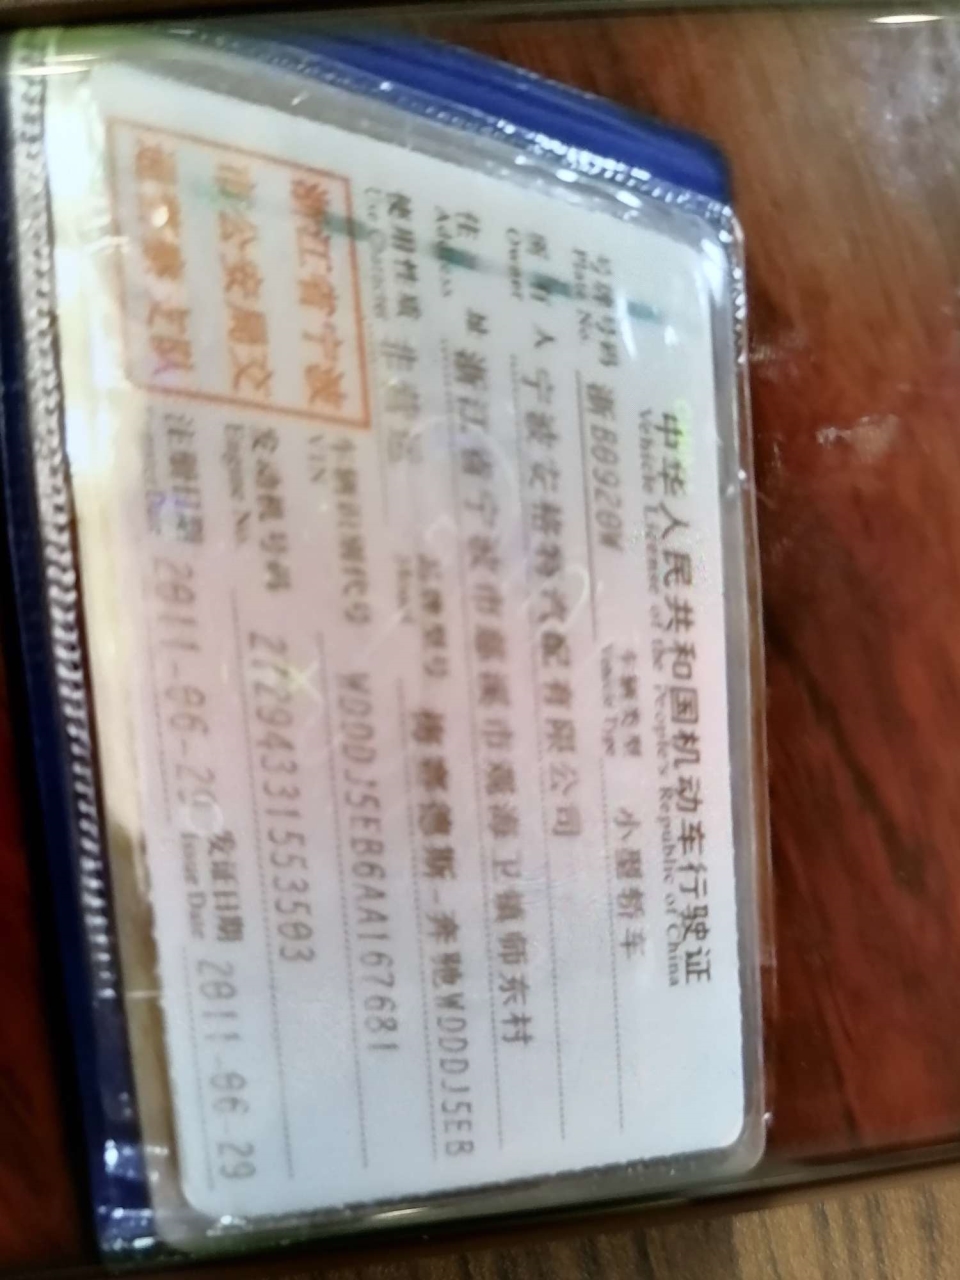 中华人民共和国机动车行驶证
Vehicle License of the People's Republic of China
号牌号码 浙B0920W 车辆类型 小型轿车
Plate No. Vehicle Type
所有人 宁波安格特汽配有限公司
Owner
住址 浙江省宁波市慈溪市观海卫镇师东村
Address
使用性质 非营运 品牌型号 梅赛德斯-奔驰WDDDJ5EB
Use Character Model
浙江省宁波
市公安局交
通警察支队
车辆识别代号 WDDDJ5EB6AA167681
VIN
发动机号码 27294331553503
Engine No.
注册日期 2011-06-29 发证日期 2011-06-29
Issue Date